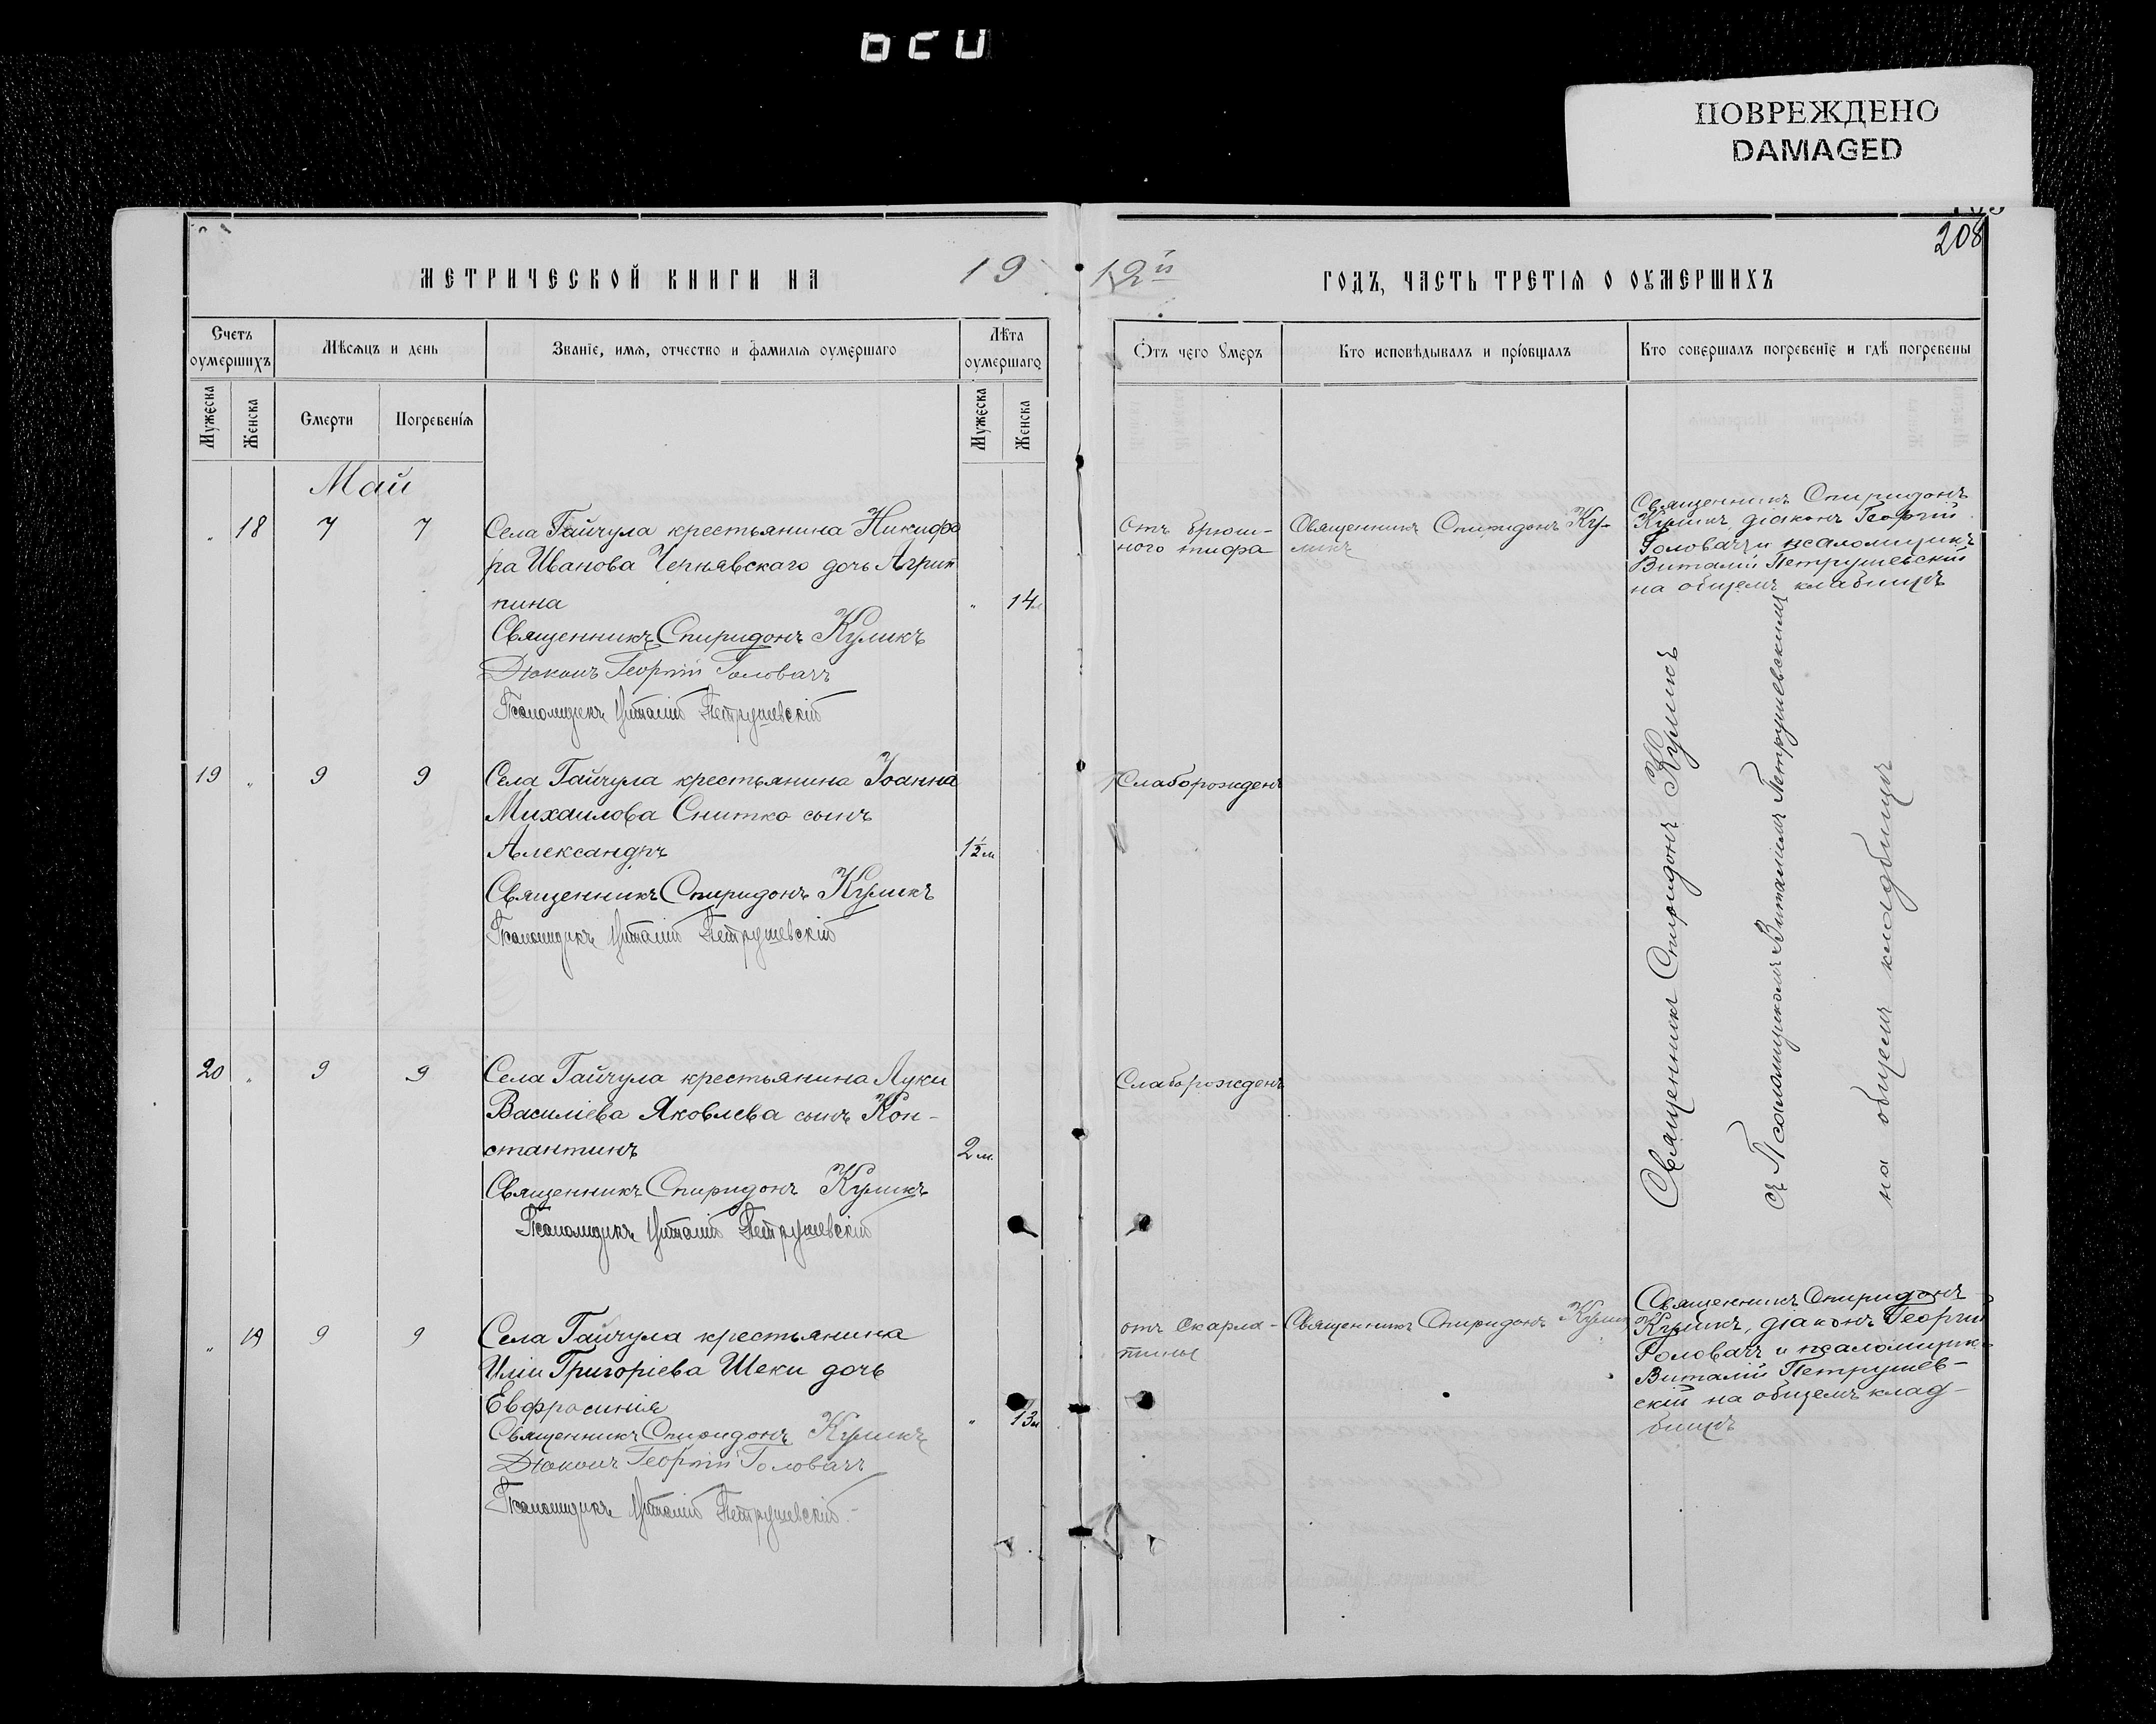 ПОВРЕЖДЕНО
DAMAGED
208
МЕТРИЧЕСКОЙ КНИГИ НА 19
12й ГОДЪ, ЧАСТЬ ТРЕТІЯ О ОУМЕРШИХЪ
Счетъ оумершихъ
Мѣсяцъ и день
Званіе, имя, отчество и фамилія оумершаго
Лѣта оумершаго
Отъ чего умеръ
Кто исповѣдывалъ и пріобщалъ
Кто совершалъ погребеніе и гдѣ погребены
Мужеска
Женска
Смерти
Погребенія
Мужеска
Женска
Май
" 18 7 7
Села Гайчула крестьянина Никифо
ра Иванова Чернявскаго дочь Агрип
пина
" 14 л
Священникъ Спиридонъ Куликъ
Діаконъ Георгій Головачъ
Псаломщикъ Виталій Петрушевскій
Отъ брюш-
ного тифа
Священникъ Спиридонъ Ку-
ликъ
Священникъ Спиридонъ
Куликъ, діаконъ Георгій
Головачъ и псаломщикъ
Виталій Петрушевскій
на общемъ кладбищѣ
19 " 9 9
Села Гайчула крестьянина Іоанна
Михаилова Снитко сынъ
Александръ
1½ м.
Священникъ Спиридонъ Куликъ
Псаломщикъ Виталій Петрушевскій
Слаборожденъ
20 " 9 9
Села Гайчула крестьянина Луки
Василіева Яковлева сынъ Кон-
стантинъ
2 м.
Священникъ Спиридонъ Куликъ
Псаломщикъ Виталій Петрушевскій
Слаборожденъ
Священникъ Спиридонъ Куликъ
съ Псаломщикомъ Виталіемъ Петрушевскимъ
на общемъ кладбищѣ
" 19 9 9
Села Гайчула крестьянина
Иліи Григоріева Шеки дочь
Евфросинія
" 13
Священникъ Спиридонъ Куликъ
Діаконъ Георгій Головачъ
Псаломщикъ Виталій Петрушевскій
отъ Скарла-
тины
Священникъ Спиридонъ Куликъ
Священникъ Спиридонъ
Куликъ, діаконъ Георгій
Головачъ и псаломщик
Виталій Петрушев-
скій на общемъ клад-
бищѣ